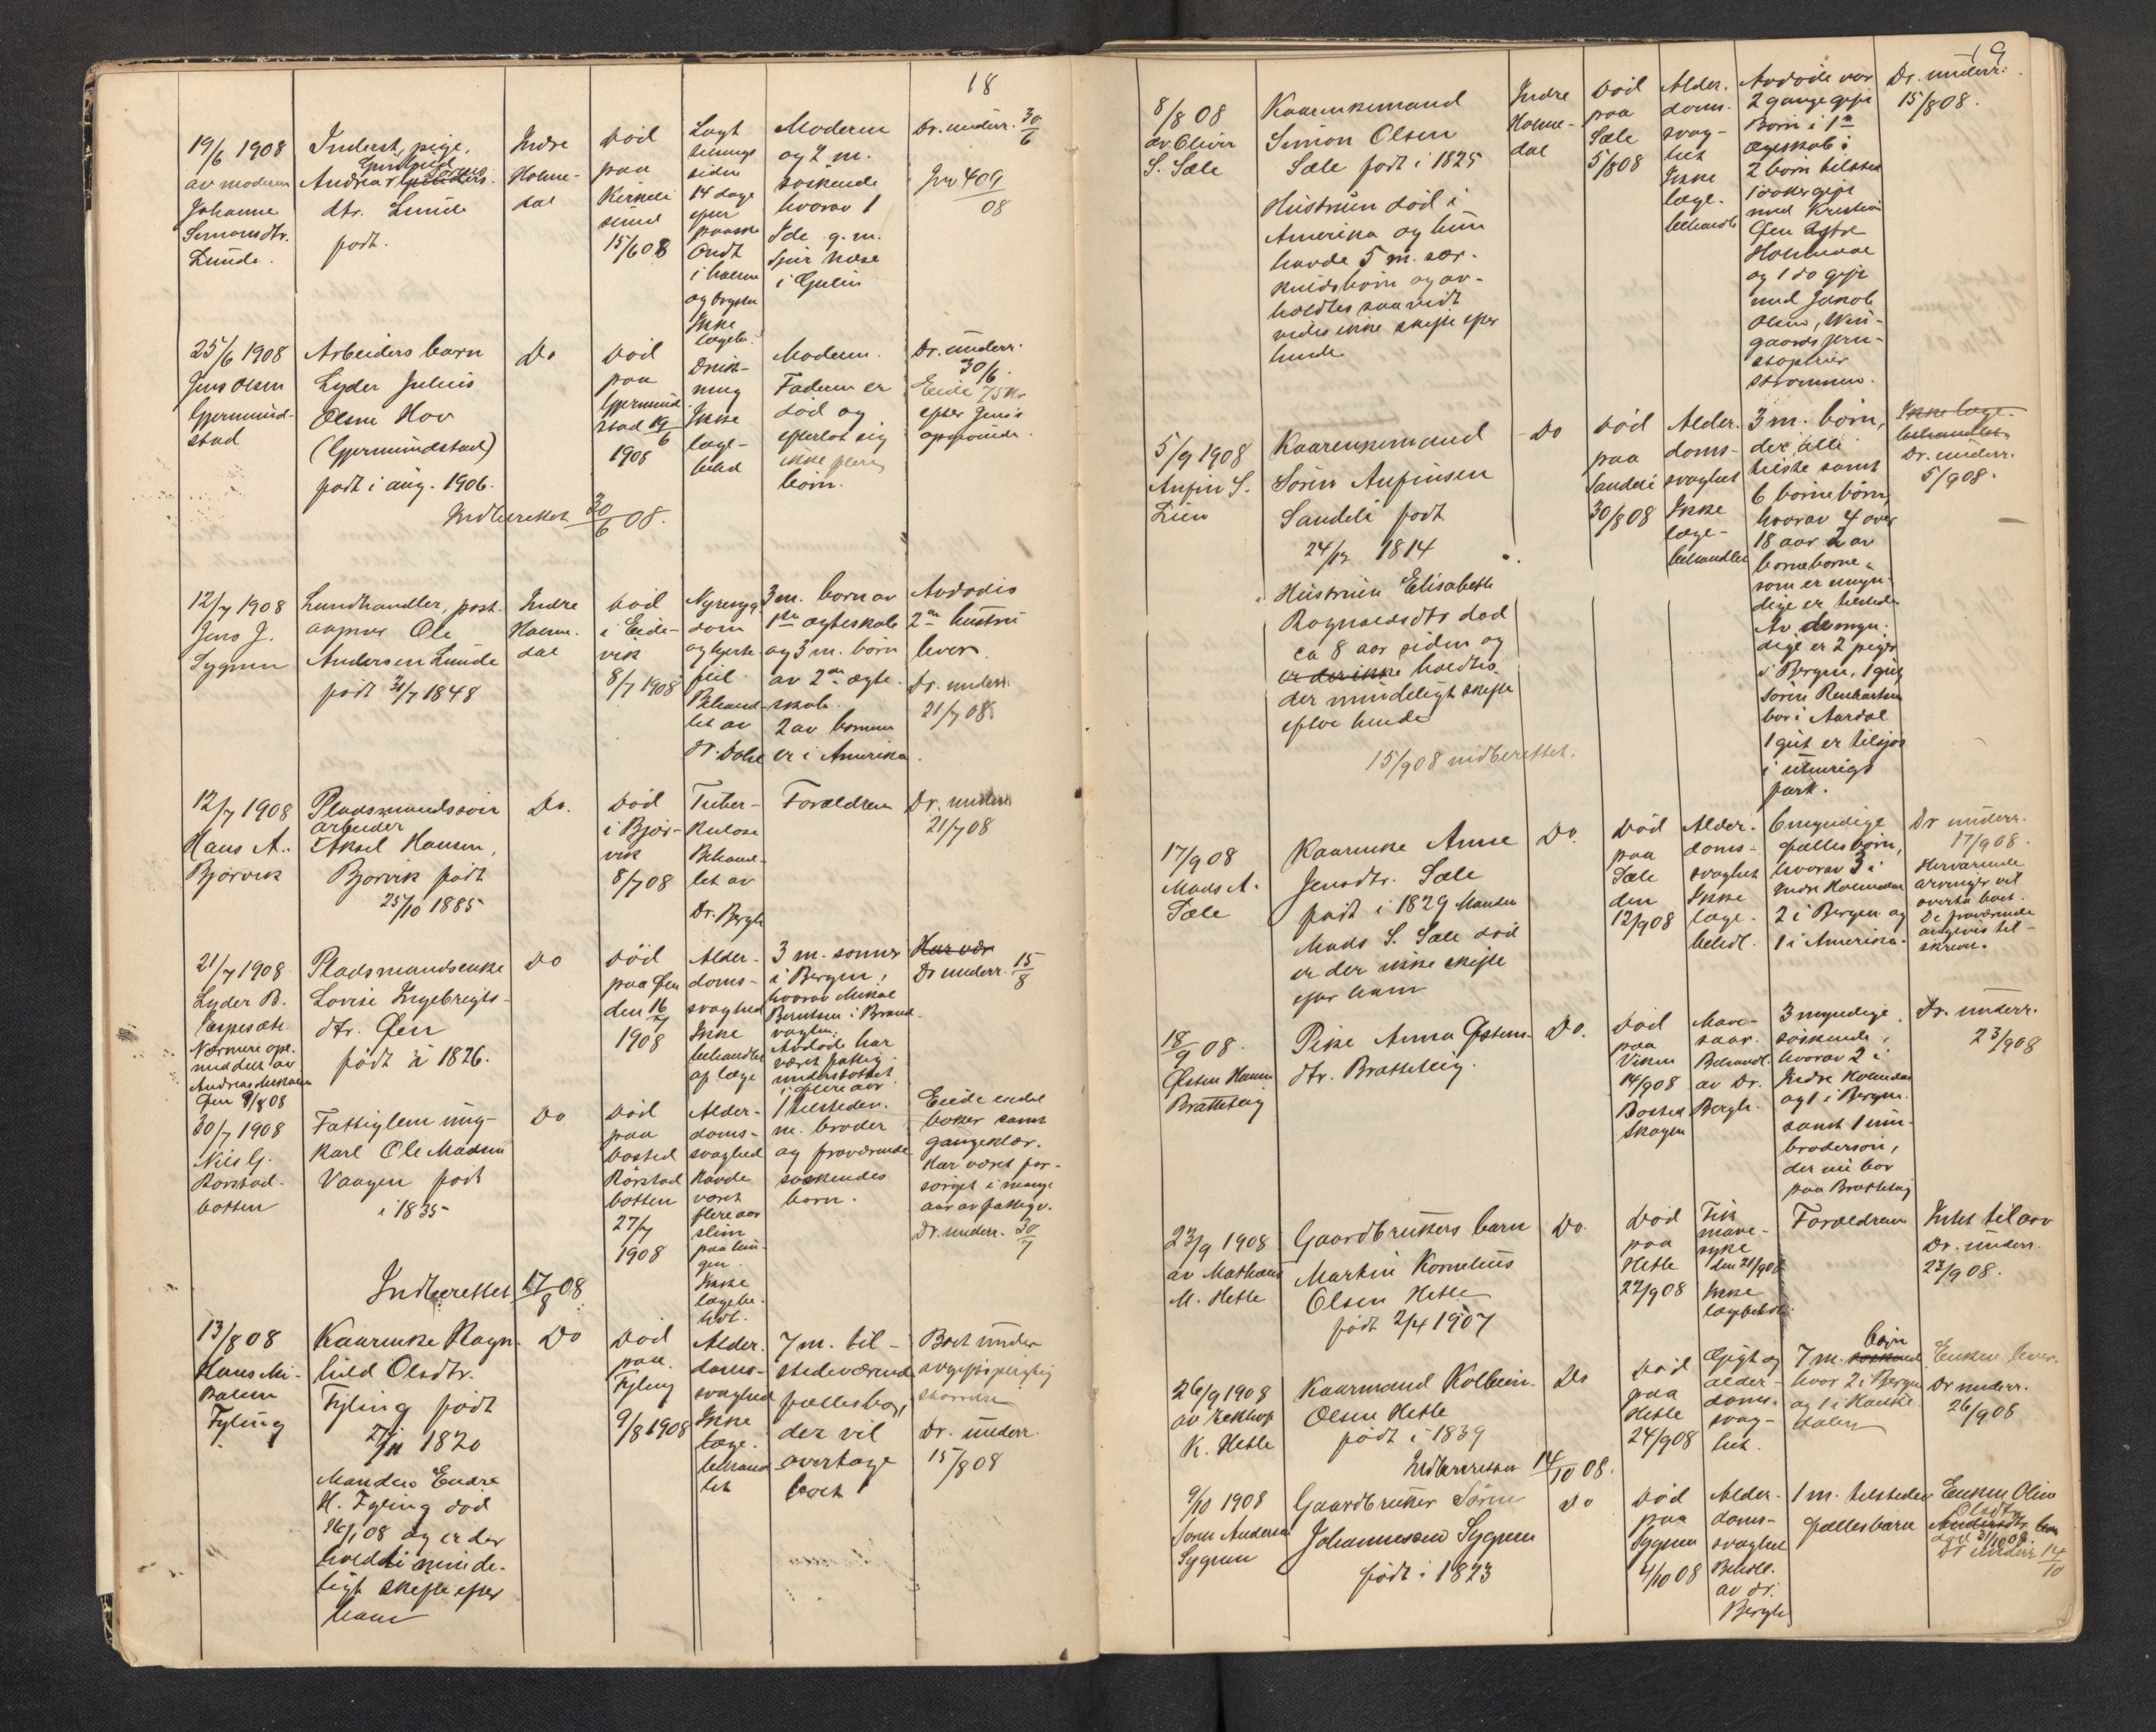 18
19/6 1908
av moderen
Johanne
Simonsdtr.
Lunde.
Inderst, pige,
Andrea
dtr. Lunde
født.
Indre
Holme-
dal
Död
paa
15/6 08
Lagt
siden
14 dage
efter
paaske
Ondt
i halsen
og brystet
Ikke
Moderen
og 2 m.
søskende
hvorav 1
g. m.
i Gulen
Dr. underr. 30/6
409/08
25/6 1908
Jens Olsen
Gjermund-
stad
Arbeiders barn
Lyder Julius
Olsen Hov
(Gjermundstad)
født i aug. 1906.
Do
Död
paa
Gjermund-
stad 19/6
1908
Druk-
ning
Ikke
læge-
behd
Moderen.
Faderen er
død og
efterlot sig
ikke flere
børn.
Dr. underr.
30/6.
Eiede 75 kr
efter Jens's
opgivende.
Indberettet 30/6 08.
12/7 1908
Jens J.
Sygnen
Landhandler, post-
aapner Ole
Andersen Lunde
født 31/7 1848
Indre
Holme-
dal
Död
i Eide-
vik
8/7 1908
Nyresyg-
dom
og hjerte-
feil.
Behand-
let av
dr. Dahl
3 m. børn av
1ste ægteskab
og 3 m. børn
av 2det ægte-
skab.
2 av børnene
er i Amerika.
Avdødes
2den hustru
lever.
Dr. underr.
21/7 08
12/7 1908
Hans A.
Bjørvik
Pladsmandssøn
arbeider
Aksel Hansen,
Bjørvik født
25/10 1885
Do.
Död
i Bjør-
vik
8/7 08
Tuber-
kulose
Behand-
let av
Dr. Bergh
Forældrene
Dr. underr
21/7 08
21/7 1908
Lyder B.
Espesæte
Nærmere opl.
meddelt av
Andreas Mikalsen
Øen 9/8 08
Pladsmandsenke
Lovise Ingebrigts-
dtr. Øen
født i 1826.
Do
Död
paa Øen
den 16/7
1908
Alder-
doms-
svaghed
Ikke
behandlet
af læge
3 m. sønner
i Bergen,
hvorav Mikal
Berntsen i Brand-
vagten.
Avdøde har
været fattig-
understøttet
i flere aar
Dr underr. 15/8
30/7 1908
Nils G.
Rørstad-
botten
Fattiglem ung-
karl Ole Madsen
Vaagen født
i 1835
Do
Död
paa
bosted
Rörstad
botten
27/7
1908
Alder-
doms-
svaghed
Havde
været
flere aar
slim
paa lun-
gen.
Ikke
lægebe-
hdl.
1 tilstedev.
m. broder
og fraværende
søskendes
børn.
Eiede endel
bøker samt
gangklær.
Har været for-
sørget i mange
aar av fattigv.
Dr. underr. 30/7
Indberettet 17/8 08
13/8 08
Hans Mi-
kalsen
Fyling
Kaarenke Ragn-
hild Olsdtr.
Fyling født
1820
Manden Endre
H. Fyling død
08 og er der
holdt minde-
ligt skifte efter
ham
Do
Död
paa
Fyling
9/8 1908
Alder-
doms-
svaghed
Ikke
læge-
behand-
let
7 m. til-
stedeværende
fællesbørn,
der vil
overtage
boet
Boet under
avgiftspligtig
størrelse
Dr. underr.
15/8 08
19
8/8 08
av Oliver
S. Sæle
Kaarenkemand
Simon Olsen
Sæle født i 1825
Hustruen død i
Amerika og hun
havde 5 m. sær-
kuldsbørn og av-
holdtes saavidt
vides ikke skifte efter
hende
Indre
Holme-
dal
Död
paa
Sæle
5/8 08
Alder-
doms-
svag-
het
Ikke
læge-
behandlet
Avdøde var
2 gange gift
Børn i 1ste
ægteskab:
2 børn tilsted
1 datter gift
med Kristian
Øen Ytre
Holmedal
og 1 do gift
med Jakob
Olsen, Win-
gaards jern-
støperi
strømmen.
Dr. underr.
15/8 08.
5/9 1908
Anfin S.
Lien
Kaarenkemand
Sörin Anfinsen
Sandeli født
24/12 1814
Hustruen Elisabeth
Rognaldsdtr død
ca 8 aar siden og
er der ikke holdtes
der mindeligt skifte
efter hende
Do
Död
paa
Sandeli
30/8 08
Alder-
doms-
svaghet
Ikke
læge-
behandlet
3 m. børn,
der alle
tilstede samt
6 børnebørn,
hvorav 4 over
18 aar 2 av
børnebørne,
som er umyn-
dige er tilstede
Av de myn-
dige er 2 piger
i Bergen, 1 gut
Sörin
bor i Aardal
1 gut er tilsjøs
i utenrigs
fart.
Ikke læge-
behandlet
Dr. underr.
5/9 08.
15/9 08 indberettet.
17/9 08
Mads A.
Sæle
Kaarenke Anne
Jensdtr. Sæle
født i 1829 Manden
Mads S. Sæle död
er der ikke skifte
efter ham
Do.
Död
paa
Sæle
den
12/9 08
Alder-
doms-
svaghet
Ikke
læge-
behdl.
6 myndige
fællesbørn,
hvorav 3 i
Indre Holmedal
2 i Bergen og
1 i Amerika.
Dr underr.
17/9 08.
Herværende
arvinger vil
overta boet.
De fraværende
angives til-
skrevne.
18/9 08.
Østen Hansen
Bratteteig
Pike Anna Østens-
dtr. Bratteteig.
Do.
Död
paa
Viken
14/9 08
Bosted
Skogen
Mave-
saar.
Behandl.
av Dr.
Bergh.
3 myndige
søskende,
hvorav 2 i
Indre Holmedal
og 1 i Bergen.
samt 1 um.
brodersön,
der nu bor
paa Bratteteig
Dr. underr.
23/9 08
23/9 1908
av Mathæus
M. Hetle
Gaardbrukers barn
Martin Kornelius
Olsen Hetle
født 2/4 1907
Do.
Död
paa
Hetle
22/9 08
Fik
mave-
syke
den 21/9 08
Ikke
lægebehdl.
Forældrene
Intet til arv
Dr. underr.
23/9 08.
26/9 1908
K. Hetle
Kaarmand Kolbein
Olsen Hetle
født i 1839
Do
Död
paa
Hetle
24/9 08
Gigt og
alder-
doms-
svag-
het.
børn
7 m. søskend
hvor 2 i Bergen
og 1 i Hauke-
dalen
Enken lever.
Dr underr.
26/9 08
Indberettet 14/10 08.
9/10 1908
Sören Andersen
Sygnen
Gaardbruker Sören
Johannessen Sygnen
født i 1823
Do
Död
paa
Sygnen
4/10 08
Alder-
doms-
svaghet
Behdl.
av dr.
Bergh
1 m. tilstedev
fællesbarn
Enken Oline
Olsdtr
Andersdtr. lever
Dr underr 14/10